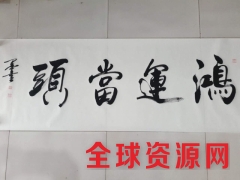 鴻運當頭
全球资源网